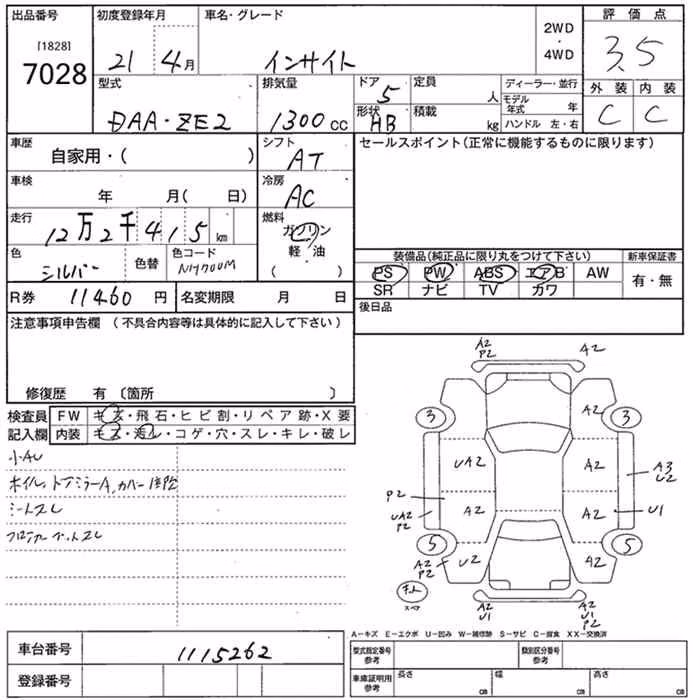 出品番号
[1828]
7028
初度登録年月
21 4月
車名・グレード
インサイト
2WD
・
4WD
評価点
3.5
型式
DAA・ZE2
排気量
1300cc
ドア
5
形状
HB
定員
人
積載
kg
ディーラー・並行
モデル年式 年
ハンドル 左・右
外装 内装
C C
車歴
自家用・( )
シフト
AT
車検
年 月( 日)
冷房
AC
走行
12万2千415km
燃料
ガソリン
軽油
( )
色
シルバー
色替
色コード
NH700M
R券 11460円
名変期限 月 日
セールスポイント(正常に機能するものに限ります)
装備品(純正品に限り丸をつけて下さい)
新車保証書
PS PW ABS エアB AW
SR ナビ TV カワ
有・無
後日品
注意事項申告欄(不具合内容等は具体的に記入して下さい)
修復歴 有〔箇所 〕
検査員
記入欄
FW キズ・飛石・ヒビ割・リペア跡・X要
内装 キズ・汚レ・コゲ・穴・スレ・キレ・破レ
小AU
シートスレ
A2
P2
A2
3
A2
3
UA2
A2
A3
U2
P2
UA2
P2
A2
A2
U1
5
A2
P2
U2
A2
5
スペア
A2
U1
A2
U1
P2
A−キズ E−エクボ U−凹み W−補修跡 S−サビ C−腐食 XX−交換済
車台番号
1115262
登録番号
型式指定番号
参考
類別区分番号
参考
車庫証明用
参考
長さ cm
幅 cm
高さ cm